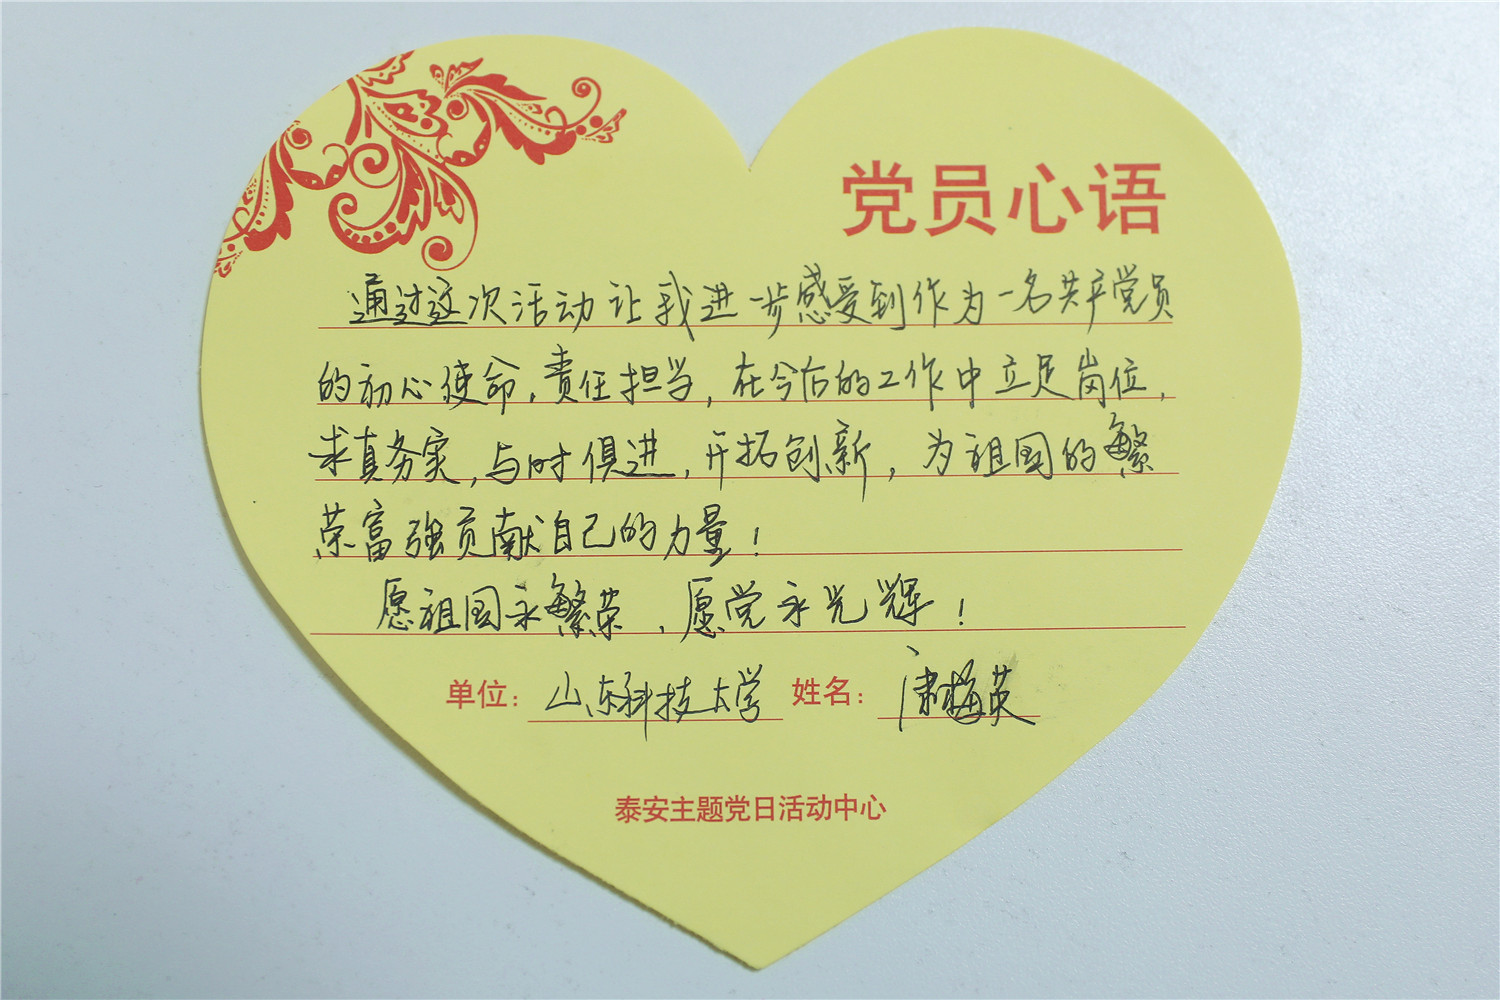 党员心语
通过这次活动让我进一步感受到作为一名共产党员
的初心使命,责任担当,在今后的工作中立足岗位,
求真务实,与时俱进,开拓创新,为祖国的繁
荣富强贡献自己的力量!
愿祖国永繁荣,愿党永光辉!
单位: 山东科技大学 姓名: 梅英
泰安主题党日活动中心